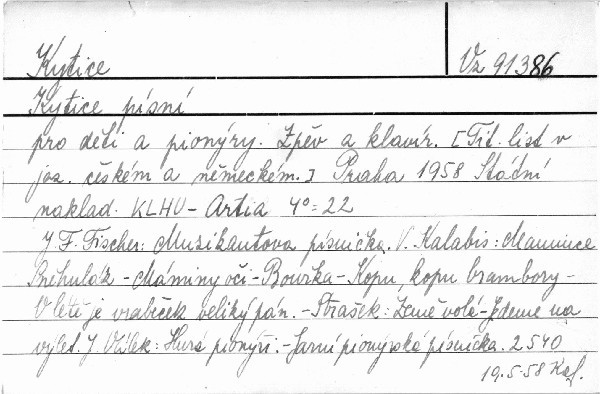 Kytice Vz 91386
Kytice písní
pro děti a pionýry. Zpěv a klavír. [Tit. list v
jaz. českém a německém.] Praha 1958 Státní
naklad. KLHU - Artia 4°=22
J F. Fischer: Muzikantova písnička. V. Kalabis: Mamince
Sněhulák - Máminy oči - Bouřka - Kopu, kopu brambory -
V létě je vrabíček veliký pán. - Strašek: Země volá - Jdeme na
výlet. J Vlček: Hura pionýři. - Jarní pionýrská písnička. 2540
19.5.58 Kaf.